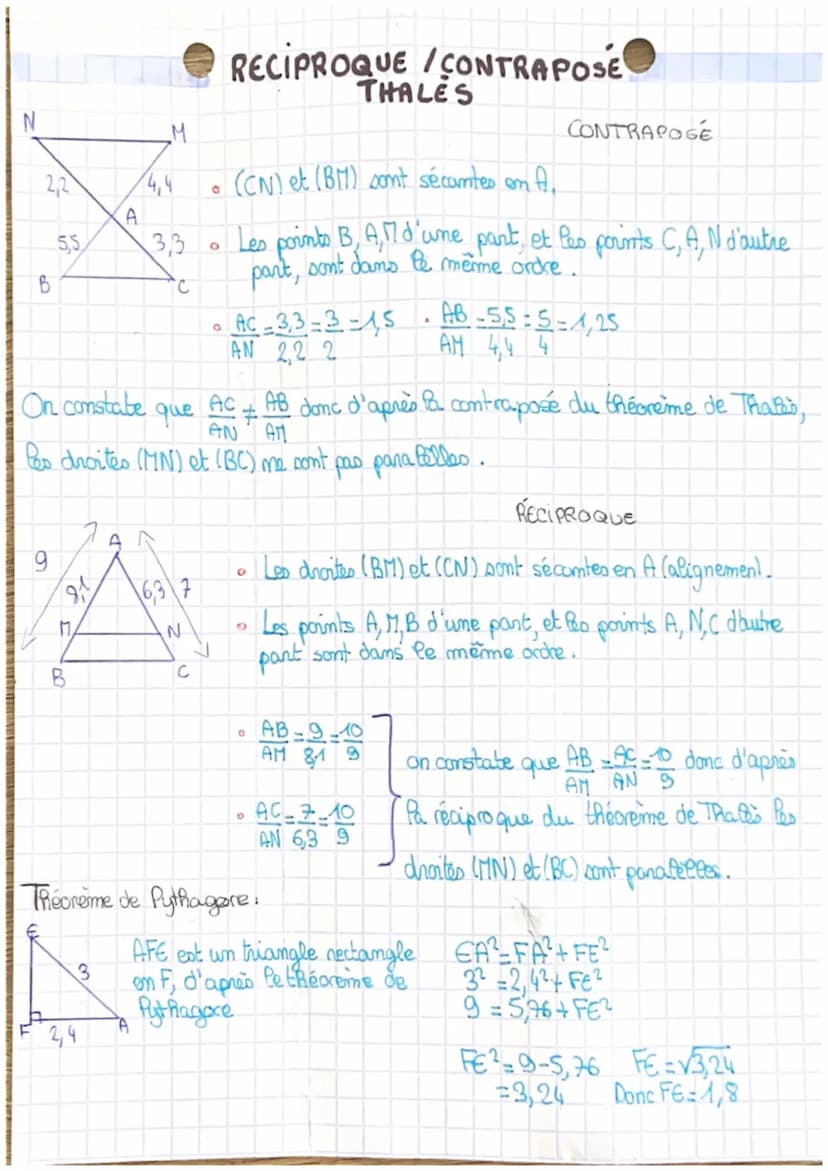 RECIPROQUE / CONTRAPOSÉ
THALÈS
CONTRAPOSÉ
N
M
2,2
4,4
A
5,5
3,3
B
C
• (CN) et (BM) sont sécantes en A,
• Les points B, A, M d'une part, et les points C, A, N d'autre
part, sont dans le même ordre.
• AC/AN = 3,3/2,2 = 3/2 = 1,5 . AB/AM = 5,5/4,4 = 5/4 = 1,25
On constate que AC/AN ≠ AB/AM donc d'après la contraposé du théorème de Thalès,
les droites (MN) et (BC) ne sont pas parallèles.
RÉCIPROQUE
9
A
8,1
6,3
7
M
N
B
C
• Les droites (BM) et (CN) sont sécantes en A (alignement).
• Les points A, M, B d'une part, et les points A, N, C d'autre
part sont dans le même ordre.
• AB/AM = 9/8,1 = 10/9
• AC/AN = 7/6,3 = 10/9
on constate que AB/AM = AC/AN = 10/9 donc d'après
la réciproque du théorème de Thalès les
droites (MN) et (BC) sont parallèles.
Théorème de Pythagore :
E
3
F
2,4
A
AFE est un triangle rectangle
en F, d'après le théorème de
Pythagore
EA² = FA² + FE²
3² = 2,4² + FE²
9 = 5,76 + FE²
FE² = 9 - 5,76
= 3,24
FE = √3,24
Donc FE = 1,8